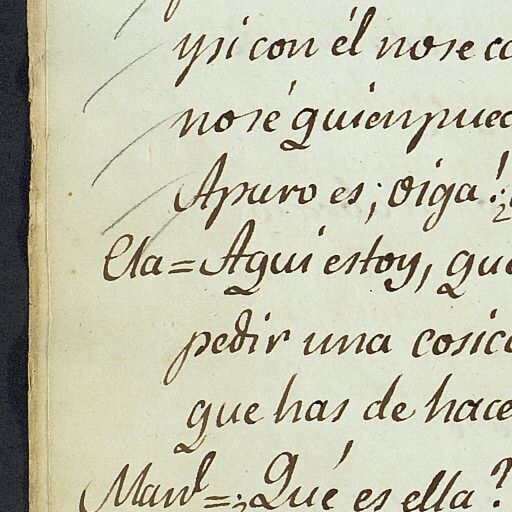 ysi con él nose co
nosé quien pued
Apuro es; oiga!
Cla= Aqui estoy, que
pedir una cosica
que has de hace
Man.l=¿Qué es ella?